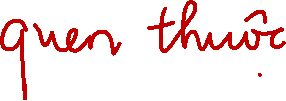 quen thuộc